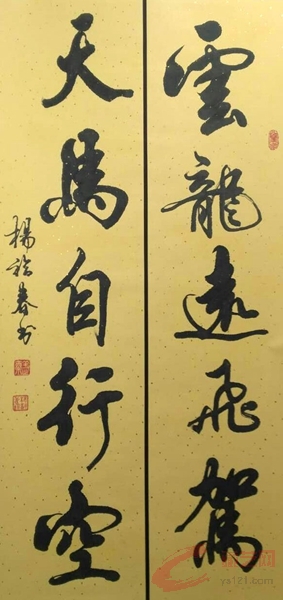 雲龍遠飛駕
天馬自行空
楊於春书
ys121.com